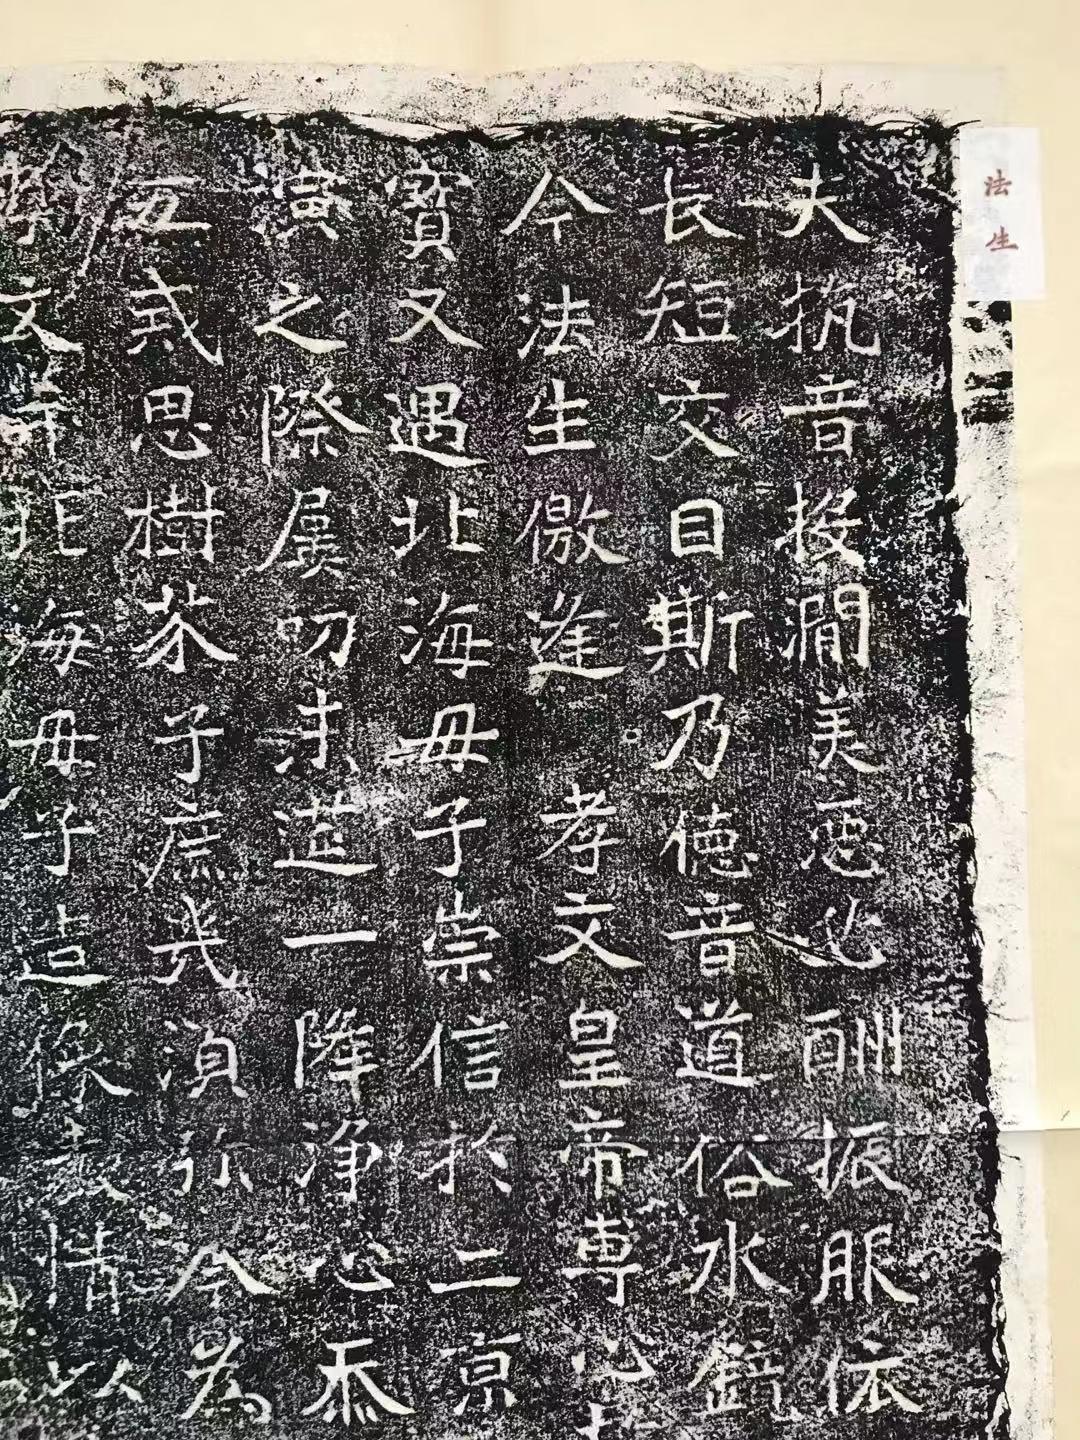 夫抗音投澗美惡必酬振服依
長短交目斯乃德音道俗水鏡
今法生儌逢孝文皇帝專心
寶又遇北海母子崇信於二京
演之際屢叨末筵一降淨心忝
五戒思樹芥子庶幾須弥今為
孝文并北海母子造像表情以
法生